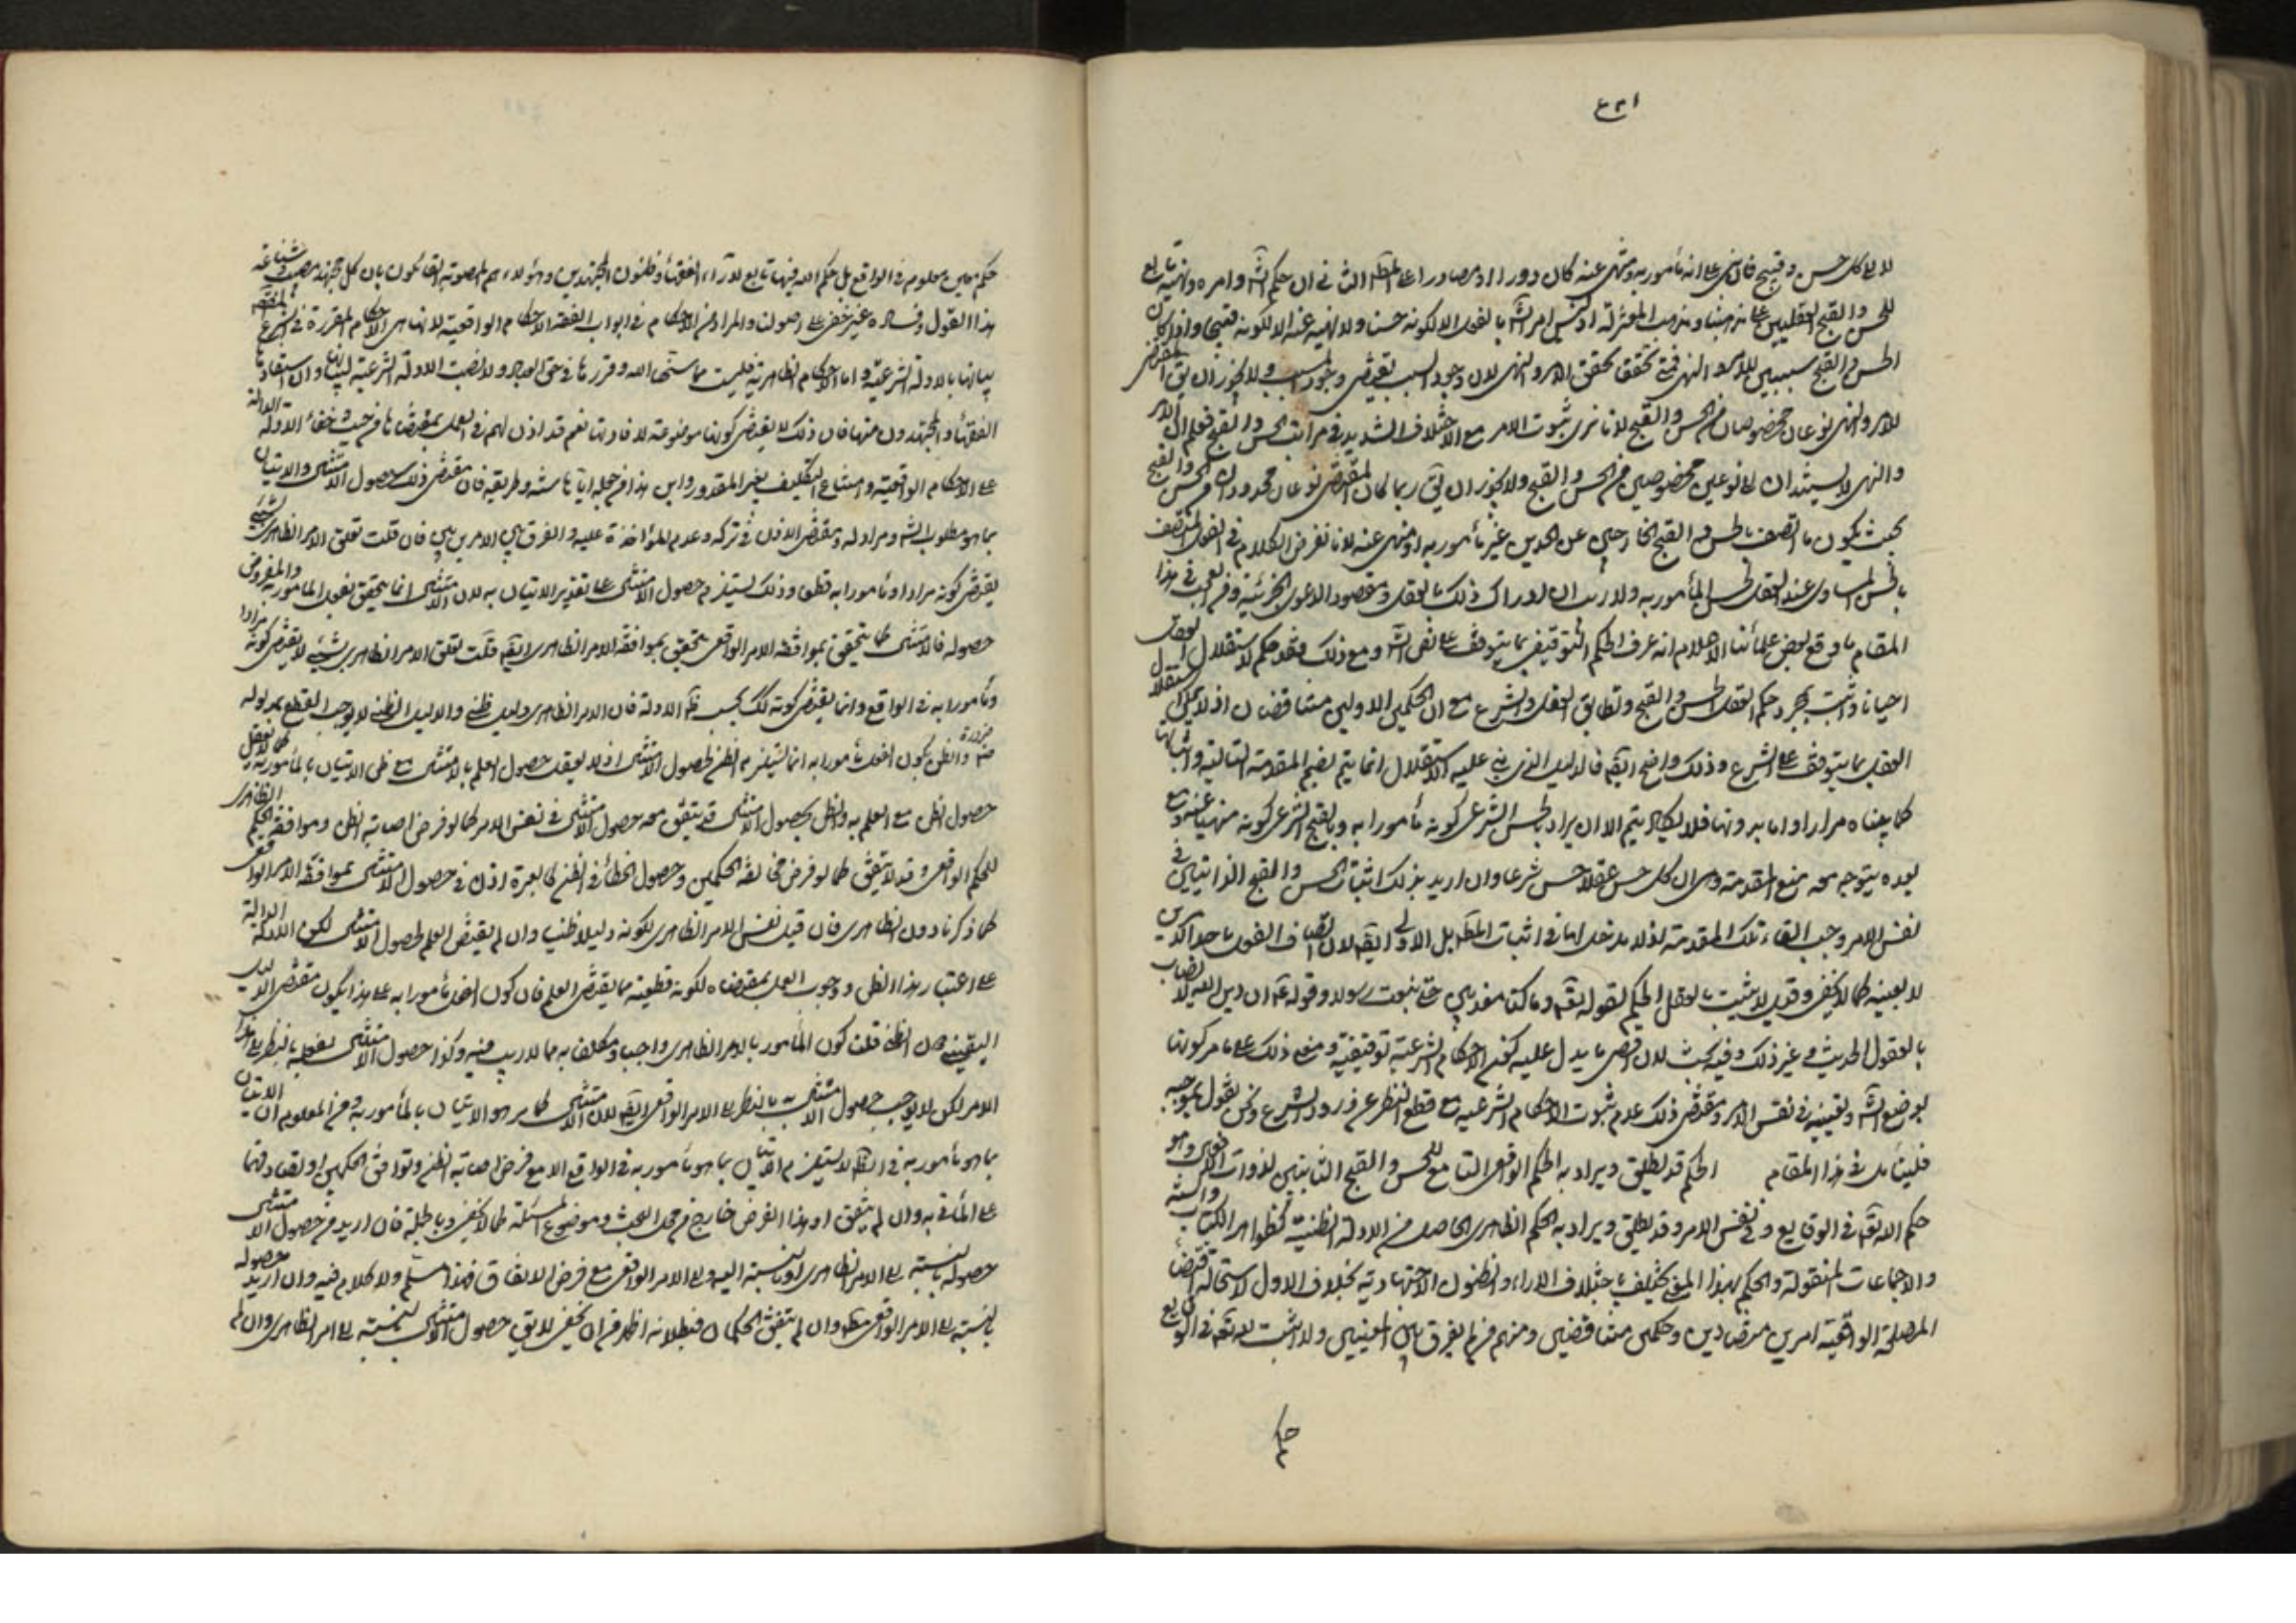 لان كل حسن وقبيح فان بنى على انه مأمور به ومنهى عنه كان دورا او مصادرا على المط الثانى ان حكم الش وامره ونهيه تابع
للحسن والقبح العقليين على مذهبنا ومذهب المعتزلة اذ ليس امر الش بالفعل الا لكونه حسنا ولا نهيه عنه الا لكونه قبيحا واذا كان
الحسن والقبح سببين للامر والنهى فمتى تحقق تحقق الامر والنهى لان وجود السبب يقتضى وجود المسبب ولا يجوز ان يق المقتضى
للامر والنهى نوعان مخصوصان من الحسن والقبح لانا نرى ثبوت الامر مع الاختلاف الشديد فى مراتب الحسن والقبح فعلم ان الامر
والنهى لا يستندان الى نوعين مخصوصين من الحسن والقبح ولا يجوز ان يق ربما كان المقتضى نوعان محدودان من الحسن والقبح
بحيث يكون ما اتصف بالحسن والقبح الخارجين عن الحدين غير مأمور به او منهى عنه لانا نفرض الكلام فى الفعل المتصف
بالحسن المساوى عند العقل لحسن المأمور به ولا ريب ان لادراك ذلك بالعقل ومقصود الدعوى الجزئية وفى العجب فى هذا
المقام ما وقع لبعض علمائنا الاعلام انه عرف الحكم التوقيفى بما يتوقف على نص الش ومع ذلك فقد حكم لاستقلال العقل
احيانا واثبت بمجرد حكم العقل الحسن والقبح وتطابق العقل والشرع مع ان الحكمين الاولين متناقضان اذ لا يمكن استقلال
العقل بما يتوقف على الشرع وذلك واضح ايض فالدليل الذى بنى عليه الاستقلال انما يتم بضم المقدمة الثانية واثباتها
كما بيناه مرارا واما بدونها فلا يكاد يتم الا ان يراد بالحسن الشرعى كونه مأمورا به وبالقبح الشرعى كونه منهيا عنه ومع
بعده يتوجه معه منع المقدمة وهى ان كل حسن عقلا حسن شرعا وان اريد بذلك اثبات الحسن والقبح الذاتيين فى
نفس الامر وجب القاء تلك المقدمة اذ لا مدخل لها فى اثبات المط بل الاولى ايض لان اتصاف الفعل باحد الامرين
لا بعينه كما لا يخفى وقيل لا يثبت بالعقل الحكم لقوله تع وما كنا معذبين حتى نبعث رسولا وقوله ع ان دين الله لا يصاب
بالعقول الحديث وغير ذلك وفيه بحث لان اقصى ما يدل عليه كون الاحكام الشرعية توقيفية ومعنى ذلك على ما مر كونها
بوضع الش وتعيينه فى نفس الامر ومقتضى ذلك عدم ثبوت الاحكام الشرعية مع قطع النظر عن ورود الشرع ونحن نقول بموجبه
فليتأمل فى هذا المقام الحكم قد يطلق ويراد به الحكم الواقعى التابع للحسن والقبح الثابتين لذوات الفعل وهو
حكم الله تع فى الوقايع وفى نفس الامر وقد يطلق ويراد به الحكم الظاهرى الحاصل من الادلة الظنية كظواهر الكتاب والسنة
والاجماعات المنقولة والحكم بهذا المعنى يختلف باختلاف الاراء والظنون الاجتهادية بخلاف الاول لاستحالة اقتضاء
المصلحة الواقعية امرين متضادين وحكمين متناقضين ومنهم من لم يفرق بين المعنيين ولا اثبت لله تع فى الوقايع
حكم
حكم معين معلوم فى الواقع بل حكم الله فيها تابع لآراء الفقهاء وظنون المجتهدين وهؤلاء هم المصوبة القائلون بان كل مجتهد مصيب وشناعة
هذا القول وفساده غير خفى على اصولنا والمراد من الاحكام فى ابواب الفقه الاحكام الواقعية لانها هى الاحكام المقررة فى الشرع المقصود
بيانها بالادلة الشرعية واما الاحكام الظاهرية فليست مما سنها الله وقررها فى حق العباد ولا نصب الادلة الشرعية لبيانها وان استفادها
الفقهاء والمجتهدون منها فان ذلك لا يقتضى كونها موضوعة لافادتها نعم قد اذن لهم فى العمل بمقتضاها من حيث خفاء الادلة الدالة
على الاحكام الواقعية وامتناع التكليف بغير المقدور واين هذا من جعله اياها سنة وطريقة فان مقتضى ذلك حصول الامتثال والاتيان
بما هو مطلوب الش ومراد له ومقتضى الاذن فى تركه وعدم المؤاخذة عليه والفرق بين الامرين بين فان قلت تعلق الامر الظاهرى بشىء
يقتضى كونه مرادا ومأمورا به قطعا وذلك يستلزم حصول الامتثال على تقدير الاتيان به لان الامتثال انما يتحقق بفعل المأمور به والمفروض
حصوله فالامتثال كما يتحقق بموافقة الامر الواقعى يتحقق بموافقة الامر الظاهرى ايض قلت تعلق الامر الظاهرى بشىء لا يقتضى كونه مرادا
ومأمورا به فى الواقع وانما يقتضى كونه كك بحسب ظ الادلة فان الامر الظاهرى دليل ظنى والدليل الظنى لا يوجب القطع بمدلوله
ضرورة والظن بكون الفعل مأمورا به انما يستلزم الظن لحصول الامتثال اذ لا يعقل حصول العلم بالامتثال مع ظن الاتيان بالمأمور به كما لا يعقل
حصول الظن مع العلم به والظن بحصول الامتثال قد يتفق معه حصول الامتثال فى نفس الامر كما لو فرض اصابة الظن وموافقة الحكم الظاهرى
للحكم الواقعى وقد لا يتفق كما لو فرض مخالفة الحكمين وحصول الخطأ فى الظن فالعبرة اذن فى حصول الامتثال بموافقة الامر الواقعى
كما ذكرنا دون الظاهرى فان قيل نفس الامر الظاهرى لكونه دليلا ظنيا وان لم يقتض العلم لحصول الامتثال لكن الادلة الدالة
على اعتبار هذا الظن ووجوب العمل بمقتضاه لكونه قطعية مما يقتضى العلم فان كون الفعل مأمورا به على هذا يكون مقتضى الدليل
اليقينى دون الظنى قلت كون المأمور بالامر الظاهرى واجبا ومكلفا به مما لا ريب فيه وكذا حصول الامتثال بفعله بالنظر الى هذا
الامر لكن لا يوجب حصول الامتثال به بالنظر الى الامر الواقعى ايض لان الامتثال كما مر هو الاتيان بالمأمور به ومن المعلوم ان الاتيان
بما هو مأمور به فى الظ لا يستلزم الاتيان بما هو مأمور به فى الواقع الا مع فرض اصابة الظن وتوافق الحكمين وتصادقهما
على المأتى به وان لم يتفق او هذا الفرض خارج من محل البحث وموضوع المسئلة كما لا يخفى وبالجملة فان اريد من حصول الامتثال
حصوله بالنسبة الى الامر الظاهرى او بالنسبة اليه والى الامر الواقعى مع فرض الاتفاق فهذا مسلم ولا كلام فيه وان اريد حصوله
بالنسبة الى الامر الواقعى مط وان لم يتفق الحكمان فبطلانه اظهر من ان يخفى لا يق حصول الامتثال بالنسبة الى الامر الظاهرى وان لم